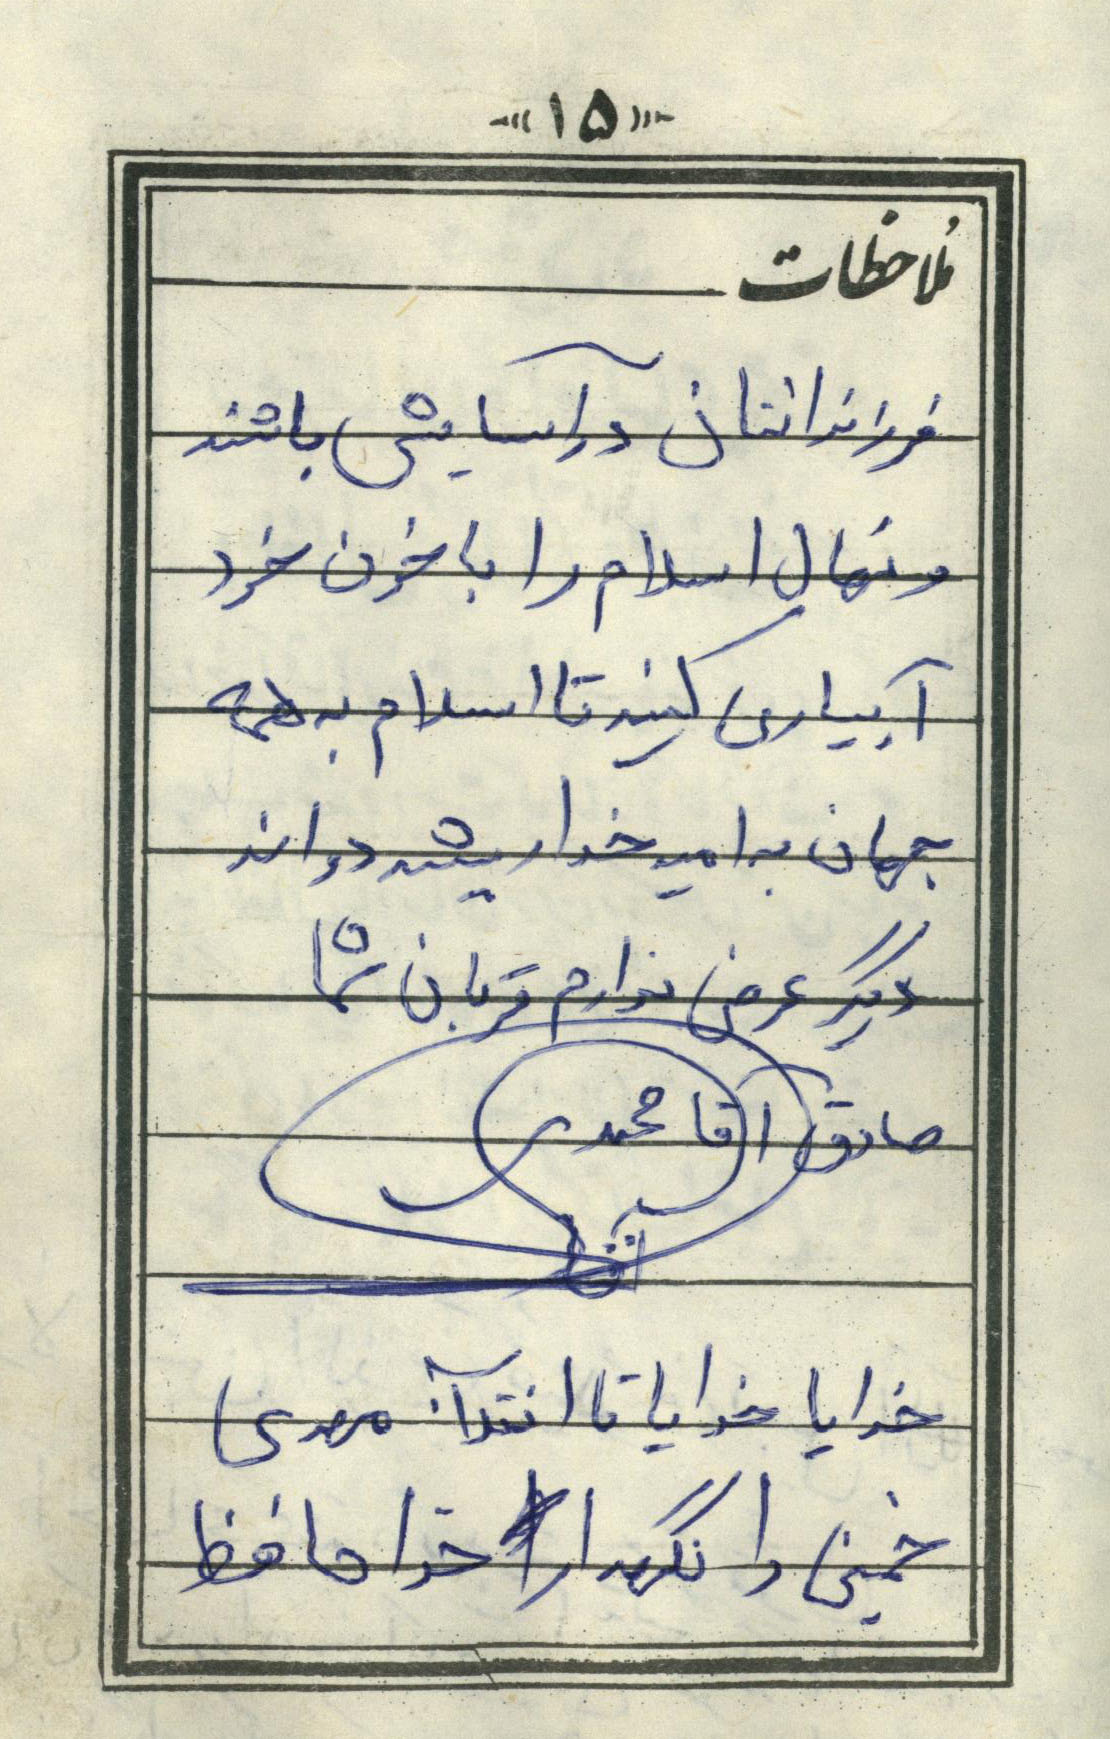 «۱۵»
ملاحظات
فرزاندانتان در آسایش باشند
و نهال اسلام را با خون خود
آبیاری کنید تا اسلام به همه
جهان به امید خدا ریشه دواند
دیگر عرضی ندارم قربان شما
صادق آقا محمدی
آقا
خدایا خدایا تا انقلاب مهدی
خمینی را نگهدار خدا حافظ